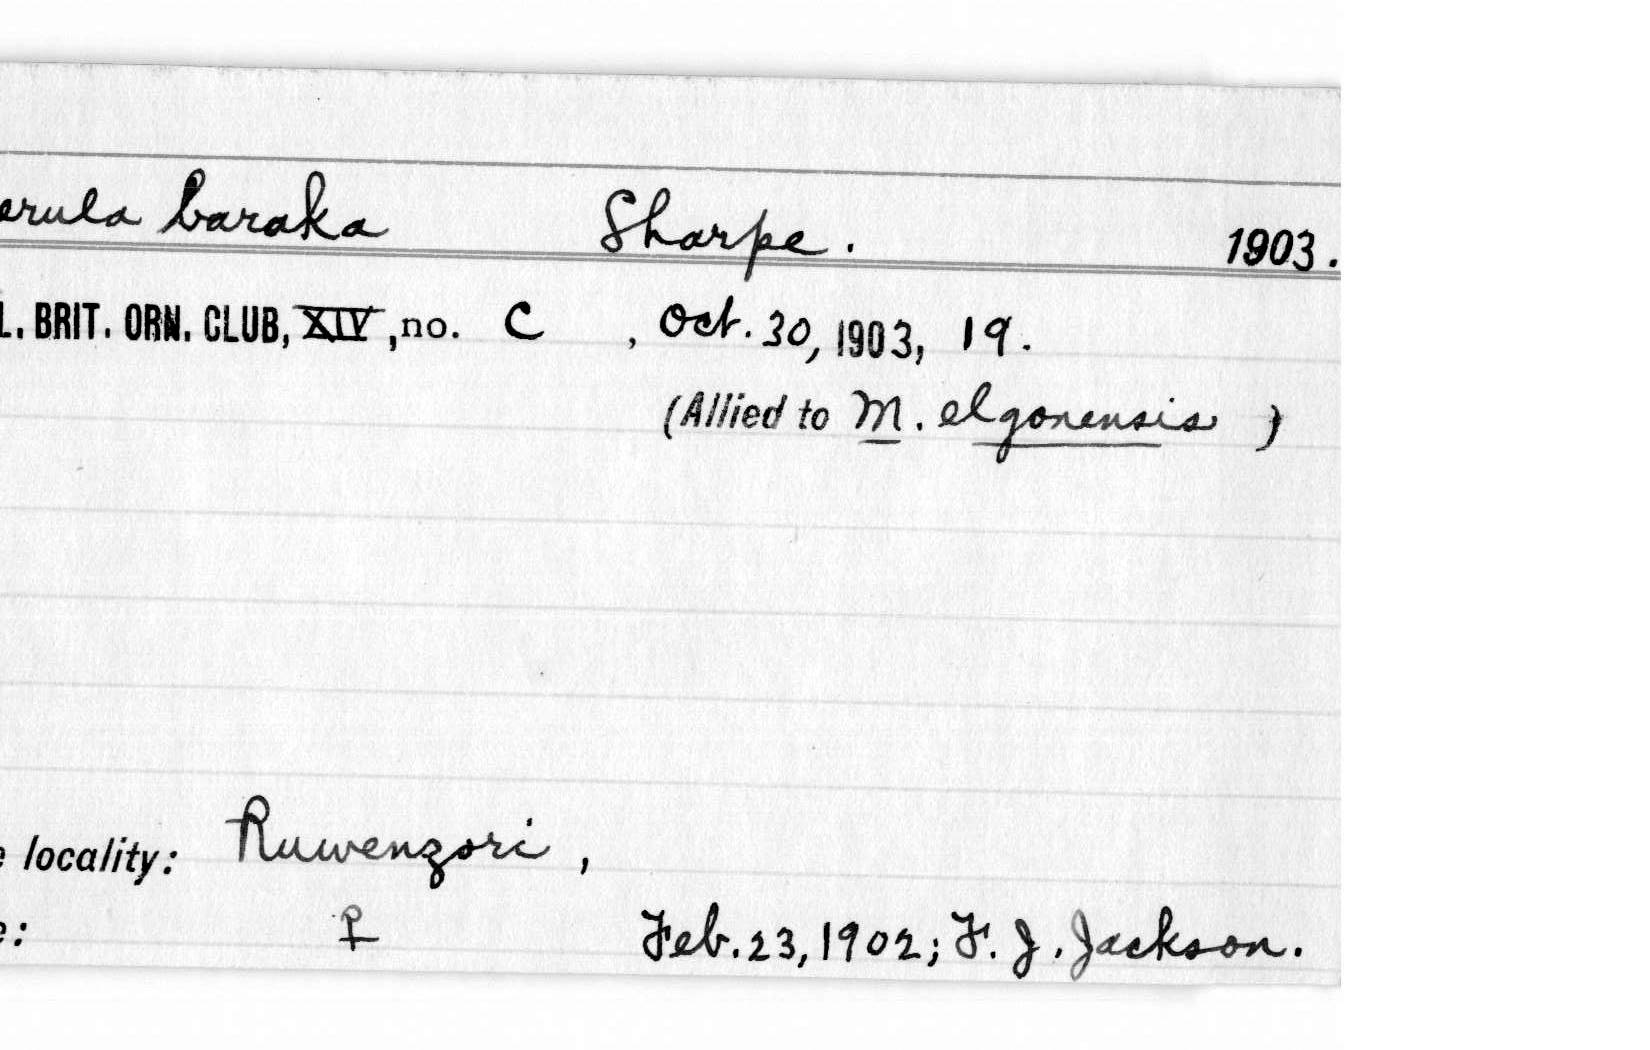 erula baraka Sharpe. 1903.
L. BRIT. ORN. CLUB, XIV, no. C , Oct. 30, 1903, 19.
(Allied to M. elgonensis )
e locality: Ruwenzori ,
e: ♀ Feb. 23, 1902; F. J. Jackson.